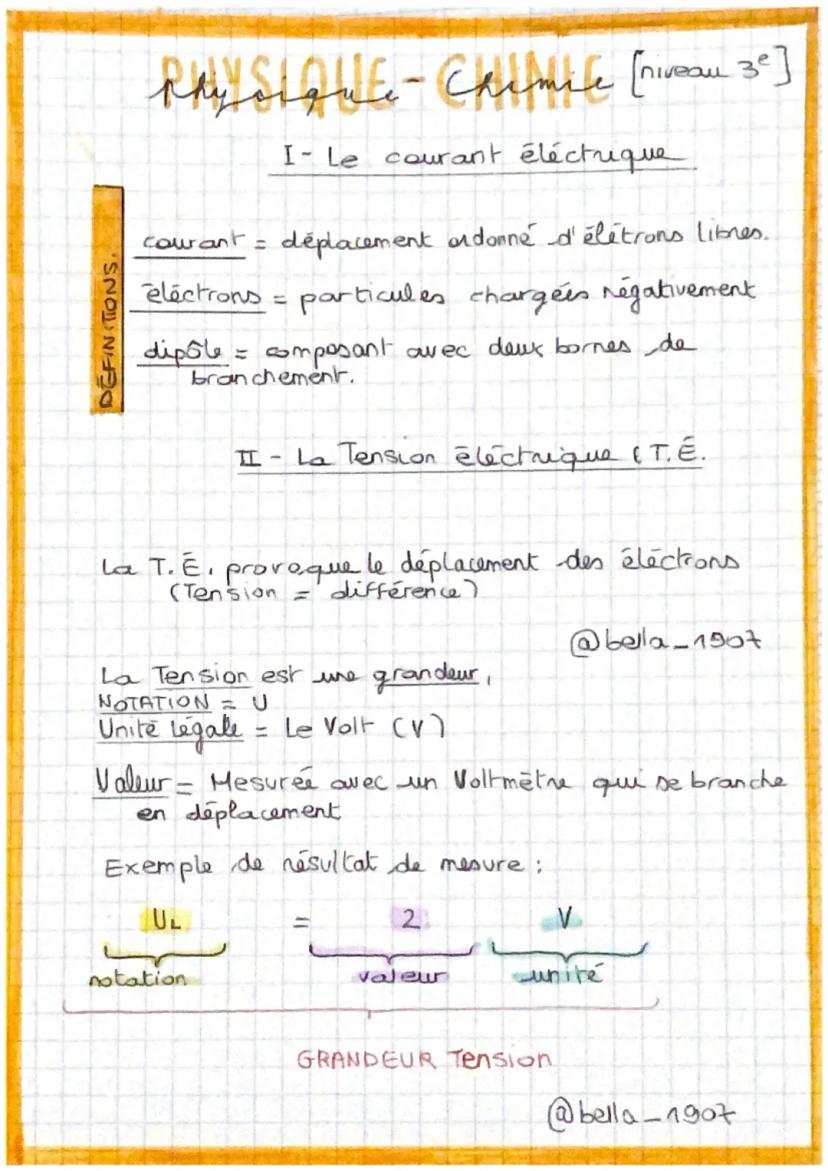 PHYSIQUE-CHIMIE [niveau 3e]
Physique-Chimie
I- Le courant éléctrique
DÉFINITIONS.
courant = déplacement ordonné d'élétrons libres.
éléctrons = particules chargées négativement
dipôle = composant avec deux bornes de
branchement.
II - La Tension éléctrique (T.É.
La T.É. provoque le déplacement des éléctrons
(Tension = différence)
@bella_1907
La Tension est une grandeur,
NOTATION = U
Unité légale = Le Volt (V)
Valeur = Mesurée avec un Voltmètre qui se branche
en déplacement
Exemple de résultat de mesure :
UL = 2 V
notation valeur unité
GRANDEUR Tension
@bella_1907